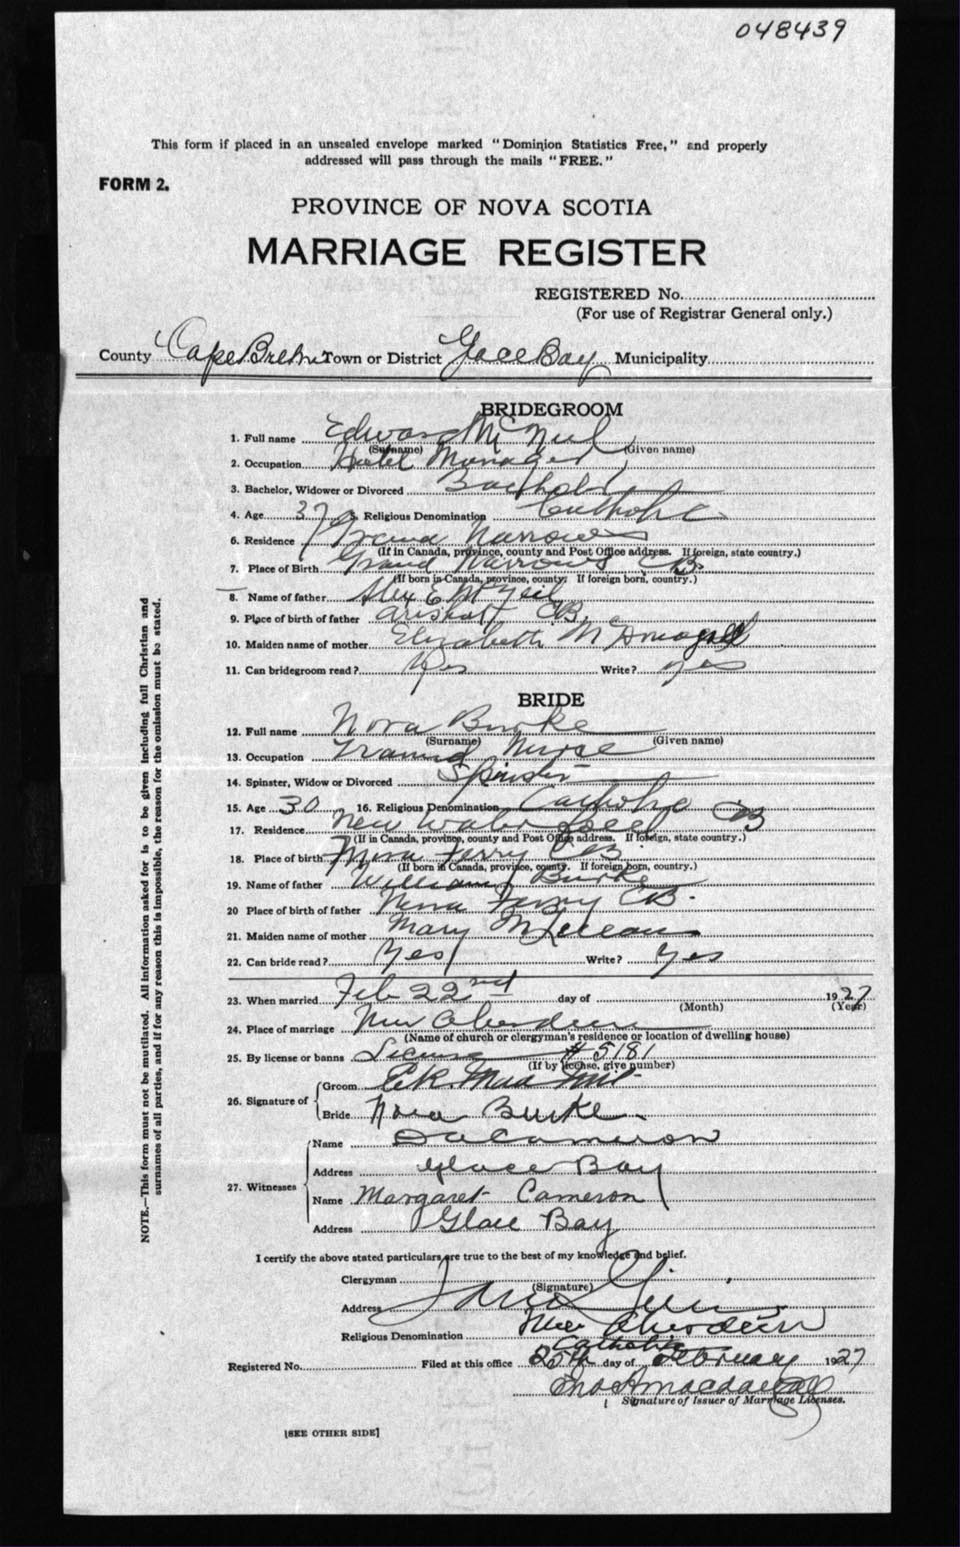 048439
This form if placed in an unsealed envelope marked "Dominion Statistics Free," and properly
addressed will pass through the mails "FREE."
FORM 2.
PROVINCE OF NOVA SCOTIA
MARRIAGE REGISTER
REGISTERED No.
(For use of Registrar General only.)
County Cape Breton Town or District Glace Bay Municipality
BRIDEGROOM
1. Full name Edward McNeil
(Surname) (Given name)
2. Occupation Hotel Manager
3. Bachelor, Widower or Divorced Bachelor
4. Age 37 5. Religious Denomination Catholic
6. Residence Grand Narrows
(If in Canada, province, county and Post Office address. If foreign, state country.)
7. Place of Birth Grand Narrows CB
(If born in Canada, province, county. If foreign born, country.)
8. Name of father Alex McNeil
9. Place of birth of father CB
10. Maiden name of mother Elizabeth
11. Can bridegroom read? Yes Write? yes
BRIDE
12. Full name Nora Burke
(Surname) (Given name)
13. Occupation Trained Nurse
14. Spinster, Widow or Divorced Spinster
15. Age 30 16. Religious Denomination Catholic
17. Residence New Waterford CB
(If in Canada, province, county and Post Office address. If foreign, state country.)
18. Place of birth Ferry CB
(If born in Canada, province, county. If foreign born, country.)
19. Name of father William Burke
20 Place of birth of father Ferry CB.
21. Maiden name of mother Mary McLean
22. Can bride read? Yes Write? Yes
23. When married Feb 22nd day of 1927
(Month) (Year)
24. Place of marriage New Aberdeen
(Name of church or clergyman's residence or location of dwelling house)
25. By license or banns License #5181
(If by license, give number)
26. Signature of
Groom
Bride Nora Burke
27. Witnesses
Name Cameron
Address Glace Bay
Name Margaret Cameron
Address Glace Bay
I certify the above stated particulars are true to the best of my knowledge and belief.
Clergyman
(Signature)
Address New Aberdeen
Religious Denomination Catholic
Registered No. Filed at this office 25th day of February 1927
Signature of Issuer of Marriage Licenses.
[SEE OTHER SIDE]
NOTE.—This form must not be mutilated. All information asked for is to be given including full Christian and
surnames of all parties, and if for any reason this is impossible, the reason for the omission must be stated.